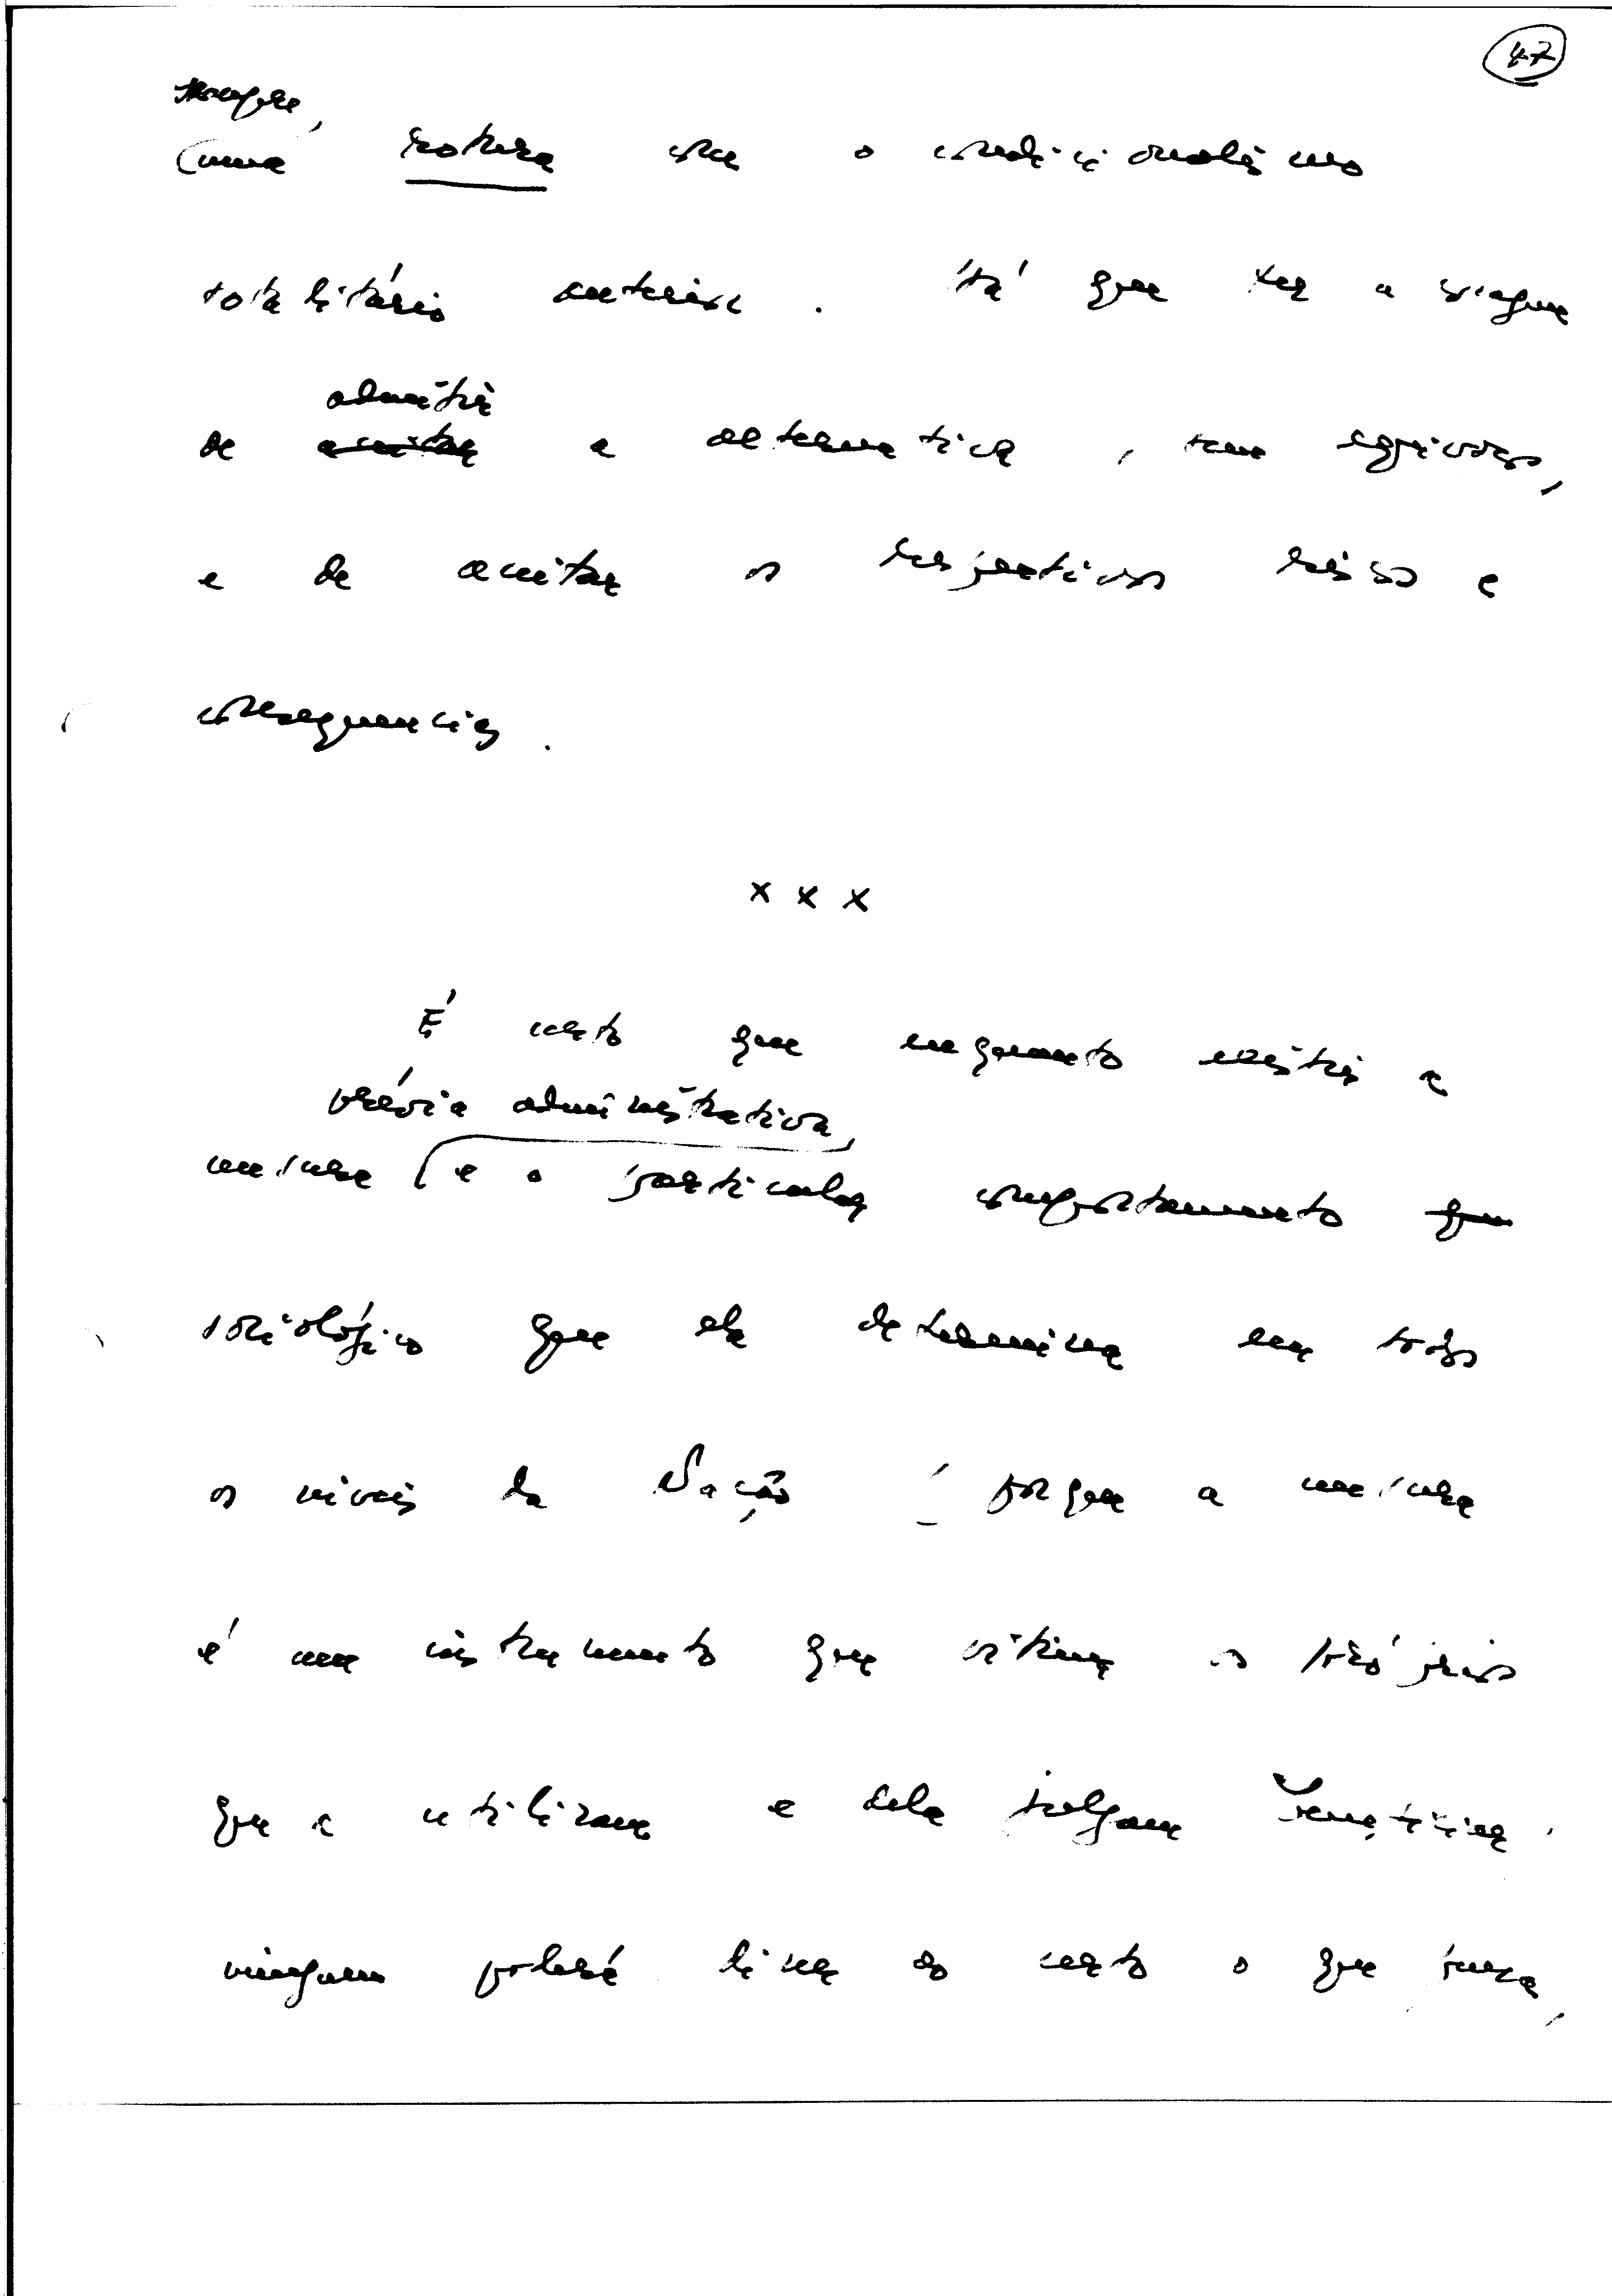 47
sempre,
uma rotura com o condicionalismo
totalitário anterior. Há que ter a coragem
admitir
de aceitar a alternativa, sem equívocos,
e de aceitar os respectivos riscos e
consequencias.
x x x
É certo que enquanto existir a
prévia administrativa,
censura e o particular comportamento que
sociológico que ela determina em todos
os níveis da Nação - porque a censura
é um instrumento que vitima os próprios
que a utilizam e dela julgam beneficiar -
ninguem poderá dizer ao certo o que pensa,